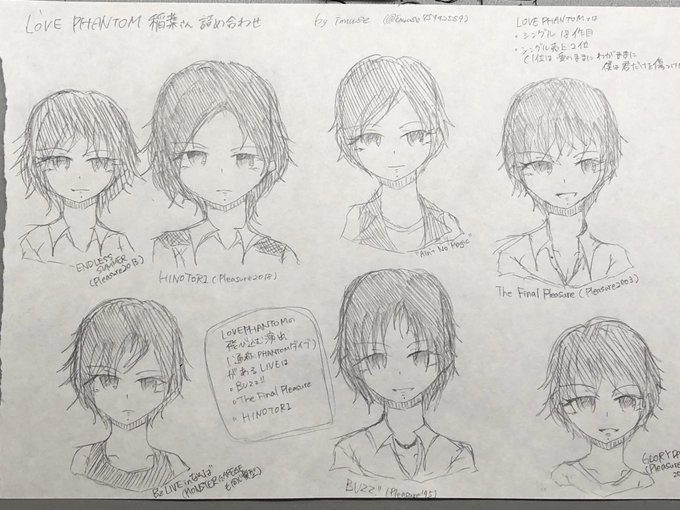 LOVE PHANTOM 稲葉さん 詰め合わせ
by imuse
LOVE PHANTOMとは
・シングル 18作目
・シングル売上 2位
(1位は 愛のままに わがままに
僕は君だけを傷つけ
ENDLESS
SUMMER
(Pleasure2013)
HINOTORI (Pleasure2018)
"Ain't No Magic"
The Final Pleasure (Pleasure2003)
LOVE PHANTOMの
飛び込む演出
(通称:PHANTOMダイブ)
がある LIVEは
・BUZZ!!
・The Final Pleasure
・HINOTORI
Be LIVE in なんば
(MONSTER GARAGE
BUZZ!! (Pleasure'95)
GLORY DA
(Pleasure